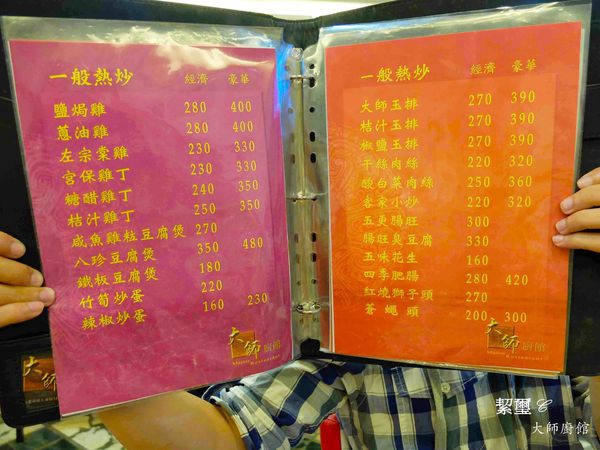 一般熱炒 經濟 豪華
鹽焗雞 280 400
蔥油雞 280 400
左宗棠雞 230 330
宮保雞丁 230 330
糖醋雞丁 240 350
桔汁雞丁 250 350
咸魚雞粒豆腐煲 270
八珍豆腐煲 350 480
鐵板豆腐煲 180
竹筍炒蛋 220
辣椒炒蛋 160 230
大師廚館
一般熱炒 經濟 豪華
大師玉排 270 390
桔汁玉排 270 390
椒鹽玉排 270 390
干絲肉絲 220 320
酸白菜肉絲 250 360
客家小炒 220 320
五更腸旺 300
腸旺臭豆腐 330
五味花生 160
四季肥腸 280 420
紅燒獅子頭 270
蒼蠅頭 200 300
大師廚館
大師
絜璽
大師廚館